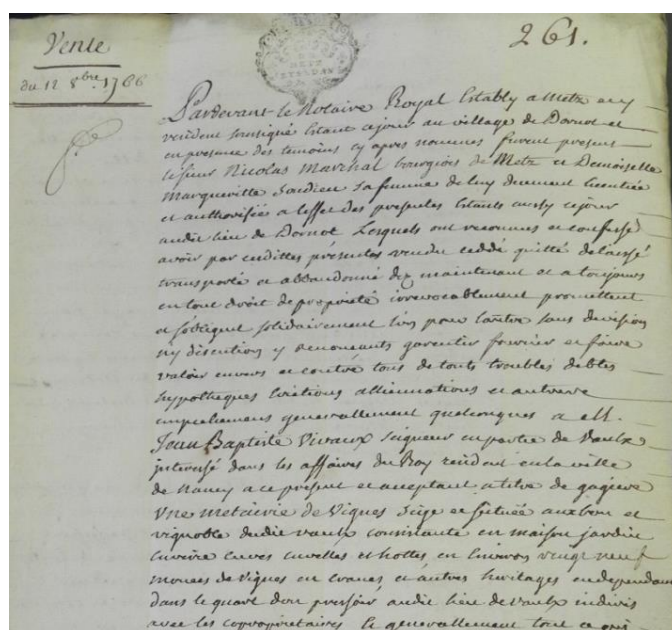 Vente
du 12 8bre 1766
261.
METZ
Pardevant le Notaire Royal Estably a Metz et y
resident soussigné Estant cejour au village de Dornot et
en presence des temoins cy apres nommés furent present
le sieur Nicolas Marchal bourgeois de Metz et Demoiselle
Margueritte sa femme de luy duement licentiée
et authorisée a leffet des presentes Estants aussy cejour
audit lieu de Dornot Lesquels ont reconnus et confessé
avoir par cesdittes presentes vendu ceddé quitté delaissé
transporté et abandonné dez maintenant et a toujours
en tout droit de proprieté irrevocablement promettent
et sobligent solidairement lun pour lautre sans division
ny discution y renonceants garentir fournir et faire
valoir envers et contre tous de touts troubles debtes
hypotheques Evictions allienations et autres
empechemens generallement quelconques a M.
Jean Baptiste Vivaux seigneur en partie de Vaulx
interessé dans les affaires du Roy resident en la ville
de Nancy a ce present et acceptant a titre de gagere
Une metairie de Vignes scize et scituée au ban et
vignoble dudit vaulx consistante en maison jardin
cuves cuvelles et hottes en Environ vingt neuf
mouées de Vignes en et autres heritages en dependant
dans le quart dun pressoir audit lieu de vaulx indivis
avec les coproprietaires Et generallement tout ce